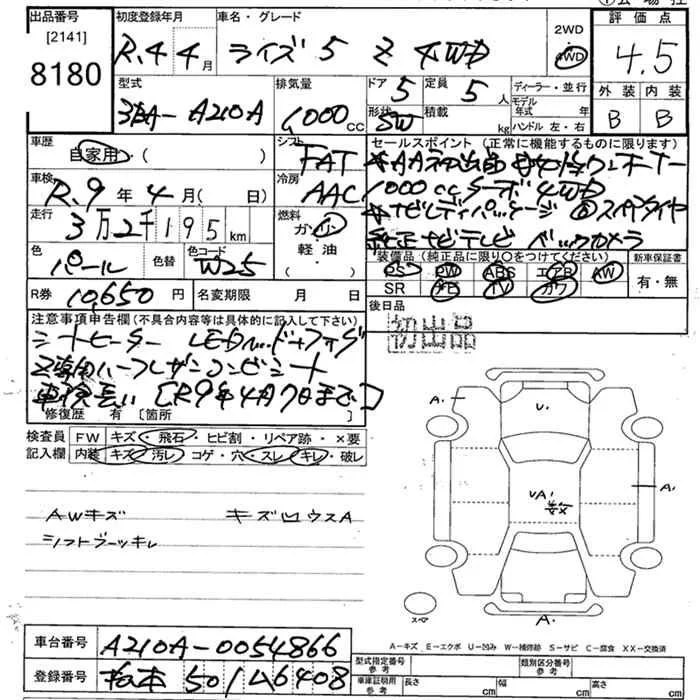 出品番号
[2141]
8180
初度登録年月
R.4 4月
車名・グレード
ライズ 5 Z 4WD
2WD
4WD
評価点
4.5
外装 内装
B B
型式
3BA-A210A
排気量
1000 CC
ドア 5
形状 SW
定員 5 人
積載 kg
ディーラー・並行
モデル年式 年
ハンドル 左・右
車歴
自家用・( )
シフト
FAT
セールスポイント(正常に機能するものに限ります)
1000ccターボ4WD
純正ナビテレビ バックカメラ
車検
R.9年4月( 日)
冷房
AAC
走行
3万2千195km
燃料
ガソリン
軽油
( )
色
パール
色替
色コード
W25
装備品(純正品に限り○をつけてください)
PS PW ABS エアB AW
SR ナビ TV カワ
新車保証書
有・無
R券 10,650円
名変期限 月 日
後日品
初出品
注意事項申告欄(不具合内容等は具体的に記入して下さい)
シートヒーター LEDヘッド+フォグ
Z専用ハーフレザーコンビシート
車検長い【R9年4月7日まで】
修復歴 有 [箇所 ]
検査員記入欄
FW キズ・飛石・ヒビ割・リペア跡・×要
内装 キズ・汚レ・コゲ・穴・スレ・キレ・破レ
AWキズ キズ凹ウスA
シフトブーツキレ
A.
U.
UA!
数
A.
スペア
A.
A-キズ E-エクボ U-凹み W-補修跡 S-サビ C-腐食 XX-交換済
車台番号
A210A-0054866
登録番号
松本 501 ム6408
型式指定番号
参考
類別区分番号
参考
車庫証明用
参考
長さ cm
幅 cm
高さ cm